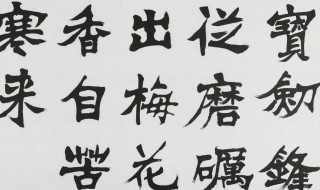 寶劍鋒
從磨礪
出梅花
香自苦
寒来